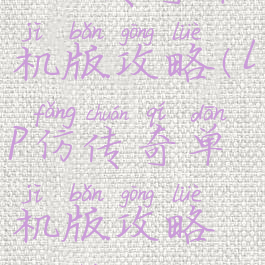 jī bǎn gōng lüè
机版攻略(l
fǎng chuán qí dān
P仿传奇单
jī bǎn gōng lüè
机版攻略